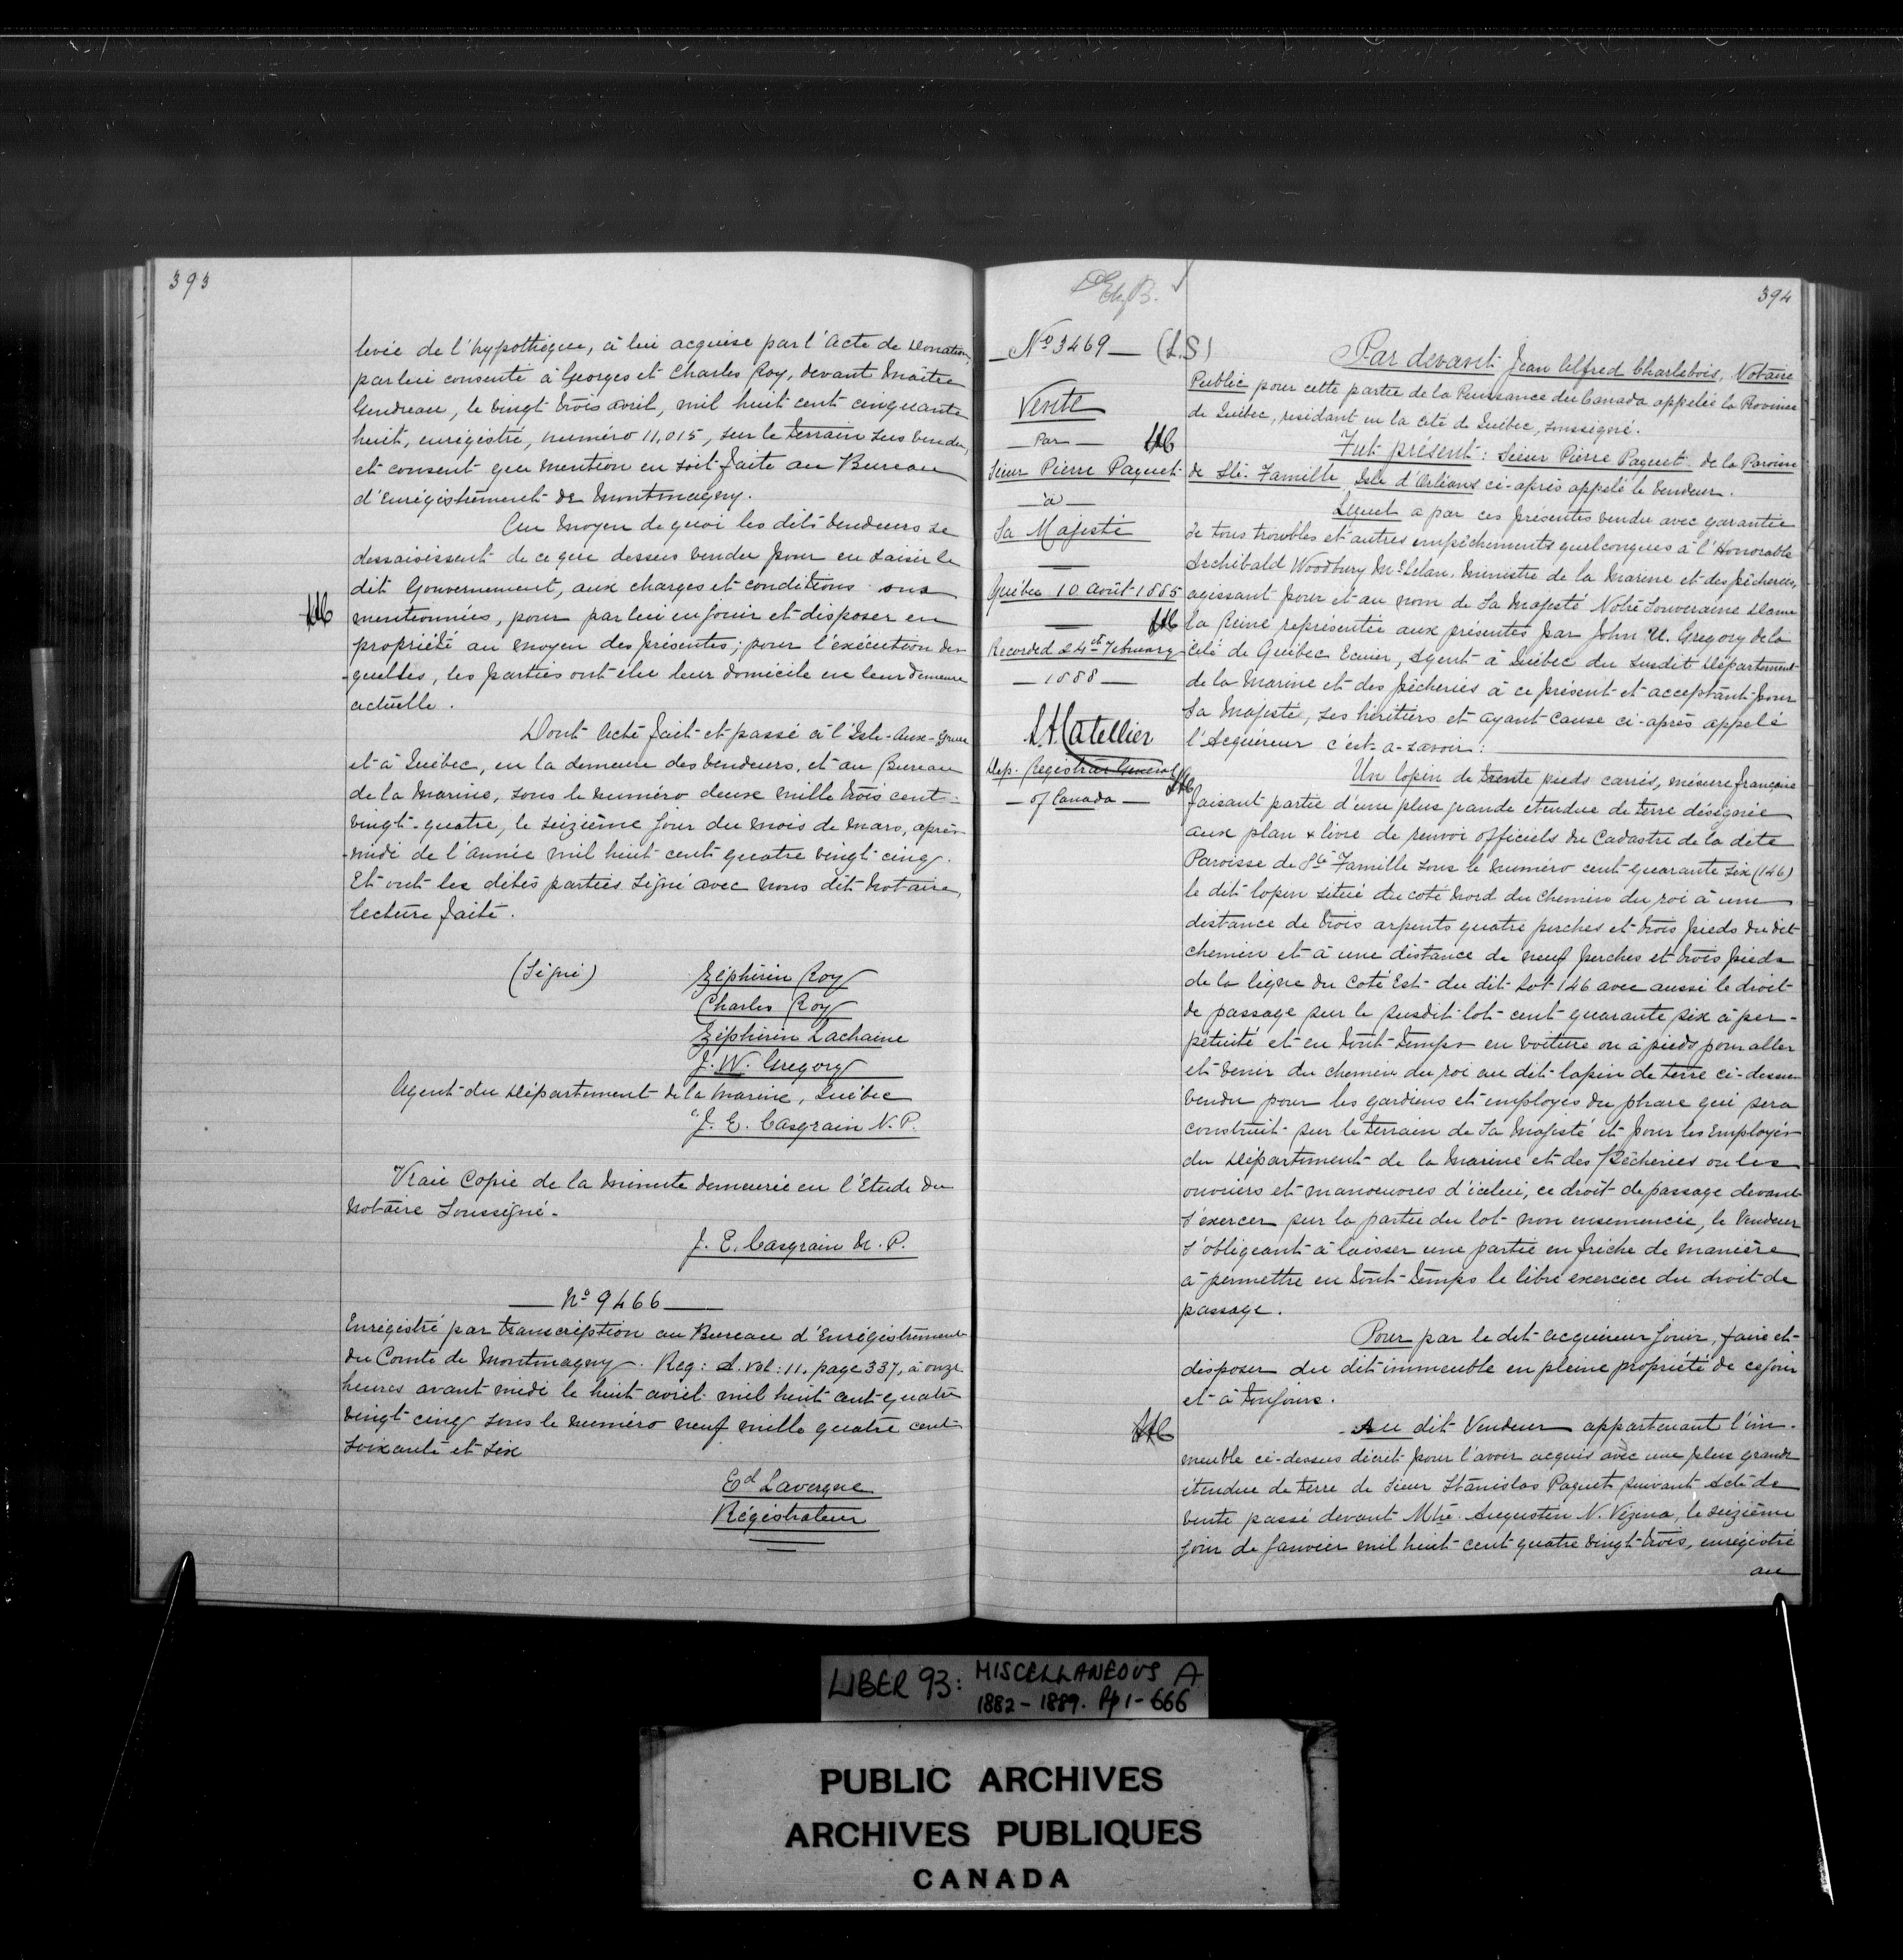 393
levée de l'hypothèque, à lui acquise par l'Acte de Donation,
par lui consenti à Georges et Charles Roy, devant Maître
Gendreau, le vingt trois avril, mil huit cent cinquante
huit, enrégistré, numéro 11,015, sur le terrain sus vendu,
et consent que mention en soit faite au Bureau
d'Enrégistrement de Montmagny.
Au moyen de quoi les dits vendeurs se
dessaisissent de ce que dessus vendu pour en saisir le
dit Gouvernement, aux charges et conditions sus
mentionnées, pour par lui en jouir et disposer en
propriété au moyen des présentes; pour l'exécution des
quelles, les parties ont élu leur domicile en leur demeure
actuelle.
Dont Acte fait et passé à l'Isle-Aux-Grues
et à Québec, en la demeure des vendeurs, et au Bureau
de la Marine, sous le numéro deux mille trois cent
vingt-quatre, le seizième jour du mois de Mars, après
midi de l'Année mil huit cent quatre vingt cinq.
Et ont les dites parties signé avec nous dit Notaire,
lecture faite.
(Signé) Zéphirin Roy
Charles Roy
Zéphirin Lachaine
J. W. Gregory
Agent du Département de la Marine, Québec
"J. E. Casgrain N.P.
Vraie Copie de la minute demeurée en l'Etude du
Notaire Soussigné.
J. E. Casgrain N.P.
No 9466
Enrégistré par transcription au Bureau d'Enrégistrement
du Comté de Montmagny. Reg: A. vol: 11. page 337, à onze
heures avant midi le huit avril mil huit cent quatre
vingt cinq sous le numéro neuf mille quatre cent
soixante et six
Ed Lavergne
Régistrateur
394
No 3469 (L.S)
Vente
Par
Sieur Pierre Paquet
à
Sa Majesté
Québec 10 Août 1885
Recorded 24th February
1888
L.A. Catellier
Dep. Registrar General
of Canada
Par devant Jean Alfred Charlebois, Notaire
Public pour cette partie de la Puissance du Canada appelée la Province
de Québec, résidant en la Cité de Québec, soussigné.
Fut présent: Sieur Pierre Paquet de la Paroisse
de Ste. Famille Isle d'Orléans ci-après appelé le Vendeur.
Lequel a par ces présentes vendu avec garantie
de tous troubles et autres empêchements quelconques à l'Honorable
Archibald Woodbury McLelan, Ministre de la Marine et des pêcheries,
agissant pour et au nom de Sa Majesté Notre Souveraine Dame
la Reine représentée aux présentes par John U. Gregory de la
Cité de Québec Ecuier, Agent à Québec du susdit Département
de la Marine et des pêcheries à ce présent et acceptant pour
Sa Majesté, ses héritiers et ayant cause ci-après appelé
l'Acquéreur c'est-a-savoir:
Un lopin de trente pieds carrés, mésure française
faisant partie d'une plus grande étendue de terre désignée
aux plan & livre de renvoi officiels du Cadastre de la dite
Paroisse de Ste Famille sous le numéro cent quarante six (146)
le dit lopin situé du coté Nord du chemin du roi à une
distance de trois arpents quatre perches et trois pieds du dit
chemin et à une distance de neuf perches et trois pieds
de la ligne du Coté Est du dit Lot 146 avec aussi le droit
de passage sur le susdit lot cent quarante six à per-
pétuité et en tout-temps en voiture ou à pieds pour aller
et venir du chemin du roi au dit lopin de terre ci-dessus
vendu pour les gardiens et employés du phare qui sera
construit sur le terrain de Sa Majesté et pour les employés
du Département de la Marine et des Pêcheries ou les
ouvriers et manoeuvres d'icelui, ce droit de passage devant
s'éxercer sur la partie du lot non ensemencée, le Vendeur
s'obligeant à laisser une partie en friche de manière
à permettre en tout-temps le libre exercice du droit de
passage.
Pour par le dit acquéreur jouir, faire et
disposer du dit immeuble en pleine propriété de ce jour
et à toujours.
Au dit Vendeur appartenant l'im-
meuble ci-dessus décrit pour l'avoir acquis avec une plus grande
étendue de terre de Sieur Stanislas Paquet suivant Acte de
vente passé devant Mtre. Augustin N. Vézina, le seizième
jour de Janvier mil huit cent quatre vingt-trois, enrégistré
au
LIBER 93: MISCELLANEOUS A
1882-1889. Pp 1-666
PUBLIC ARCHIVES
ARCHIVES PUBLIQUES
CANADA